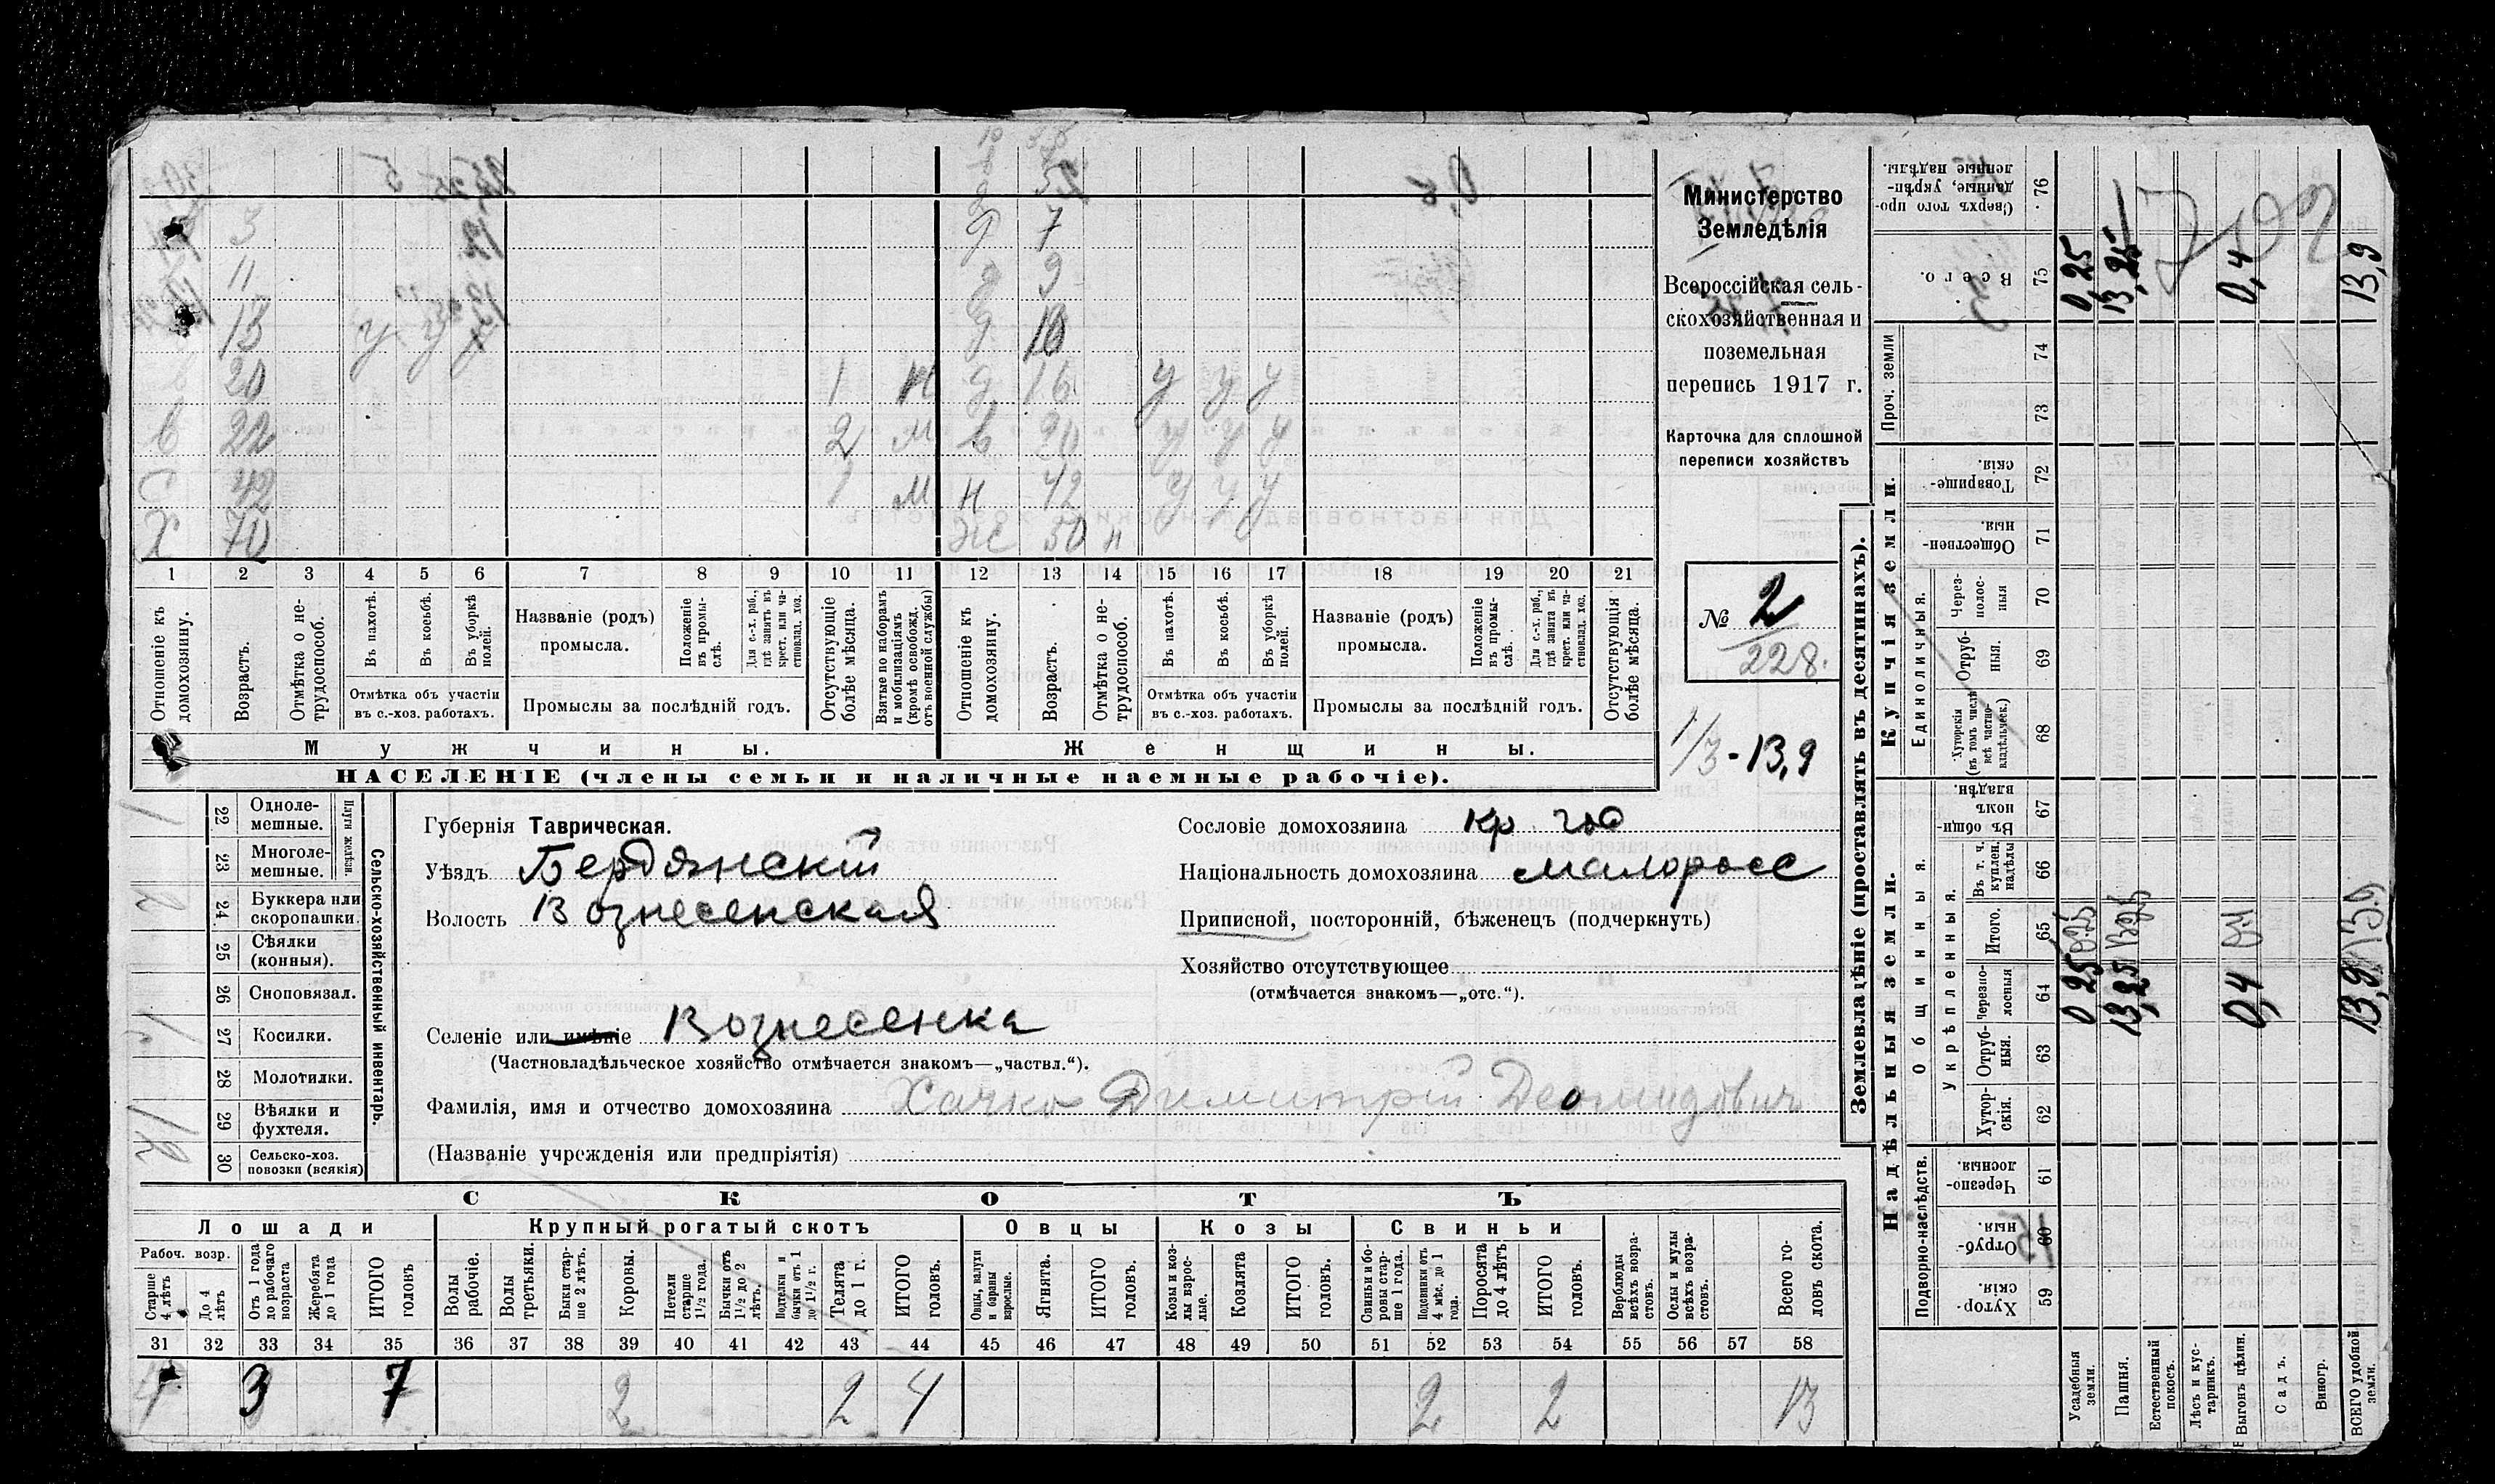 3 7
11 9
13 у у у 10
20 1 д 16 у у у
в 22 2 м в 20 у у у
с 42 1 м н 42 у у у
Х 70 ж 50 н
1 2 3 4 5 6 7 8 9 10 11 12 13 14 15 16 17 18 19 20 21
Отношеніе къ домохозяину.
Возрастъ.
Отмѣтка о не-трудоспособ.
Въ пахотѣ.
Въ косьбѣ.
Въ уборкѣ полей.
Отмѣтка объ участіи
въ с.-хоз. работахъ.
Названіе (родъ)
промысла.
Положеніе въ промы-слѣ.
Для с.-х. раб., гдѣ занятъ въ крест. или ча-стновлад. хоз.
Промыслы за послѣдній годъ.
Отсутствующіе болѣе мѣсяца.
Взятые по наборамъ и мобилизаціямъ (кромѣ освобожд. отъ военной службы)
Отношеніе къ домохозяину.
Возрастъ.
Отмѣтка о не-трудоспособ.
Въ пахотѣ.
Въ косьбѣ.
Въ уборкѣ полей.
Отмѣтка объ участіи
въ с.-хоз. работахъ.
Названіе (родъ)
промысла.
Положеніе въ промы-слѣ.
Для с.-х. раб., гдѣ занята въ крест. или ча-стновлад. хоз.
Промыслы за послѣдній годъ.
Отсутствующія болѣе мѣсяца.
Мужчины. Женщины.
НАСЕЛЕНІЕ (члены семьи и наличные наемные рабочіе).
Министерство
Земледѣлія
Всероссійская сель-
скохозяйственная и
поземельная
перепись 1917 г.
Карточка для сплошной
переписи хозяйствъ
№ 2
228.
1/3 - 13,9
22 Одноле-мешные.
23 Многоле-мешные.
Плуги желѣзн.
24 Буккера или скоропашки.
25 Сѣялки (конныя).
26 Сноповязал.
27 Косилки.
28 Молотилки.
29 Вѣялки и фухтеля.
30 Сельско-хоз. повозки (всякія)
Сельско-хозяйственный инвентарь.
Губернія Таврическая.
Уѣздъ Бердянскій
Волость Вознесенская
Селеніе или имѣніе Вознесенка
(Частновладѣльческое хозяйство отмѣчается знакомъ—„частвл.“).
Фамилія, имя и отчество домохозяина Хачко Димитрій Деомидович
(Названіе учрежденія или предпріятія)
Сословіе домохозяина кр
Національность домохозяина малоросс
Приписной, посторонній, бѣженецъ (подчеркнуть)
Хозяйство отсутствующее
(отмѣчается знакомъ—„отс.“).
СКОТЪ
Лошади Крупный рогатый скотъ Овцы Козы Свиньи
Рабоч. возр.
Старше 4 лѣтъ
До 4 лѣтъ
Отъ 1 года до рабочаго возраста
Жеребята до 1 года
ИТОГО головъ
Волы рабочіе.
Волы третьяки.
Быки стар-ше 2 лѣтъ.
Коровы.
Нетели старше 1½ года.
Бычки отъ 1½ до 2 лѣтъ.
Подтелки и бычки отъ 1 до 1½ г.
Телята до 1 г.
ИТОГО головъ.
Овцы, валухи и бараны взрослые.
Ягнята.
ИТОГО головъ.
Козы и коз-лы взрос-лые.
Козлята
ИТОГО головъ.
Свиньи и бо-ровы стар-ше 1 года.
Подсвинки отъ 4 мѣс. до 1 года.
Поросята до 4 лѣтъ
ИТОГО головъ.
Верблюды всѣхъ возра-стовъ.
Ослы и мулы всѣхъ возра-стовъ.
Всего го-ловъ скота.
31 32 33 34 35 36 37 38 39 40 41 42 43 44 45 46 47 48 49 50 51 52 53 54 55 56 57 58
4 3 7 2 2 4 2 2 13
Землевладѣніе (проставлять въ десятинахъ).
Сверхъ того про-данные, укрѣп-ленные надѣлы. 76
Всего. 75 0,25 13,25 0,4 13,9
Проч. земли 74
73
Купчія земли.
Товарище-скія. 72
Обществен-ныя. 71
Единоличныя.
Через-полос-ныя 70
Отруб-ныя. 69
Хуторскія (въ томъ числѣ всѣ частно-владѣльческ.) 68
Надѣльныя земли.
Общинныя.
Въ общи-номъ владѣн. 67
Укрѣпленныя.
Въ т. ч. куплен. надѣлы 66
Итого. 65 0,25 13,25 0,4 13,9
Черезпо-лосныя 64 0 25 13,25 0,4 13,9
Отруб-ныя. 63
Хутор-скія. 62
Подворно-наслѣдств.
Черезпо-лосныя. 61
Отруб-ныя. 60
Хутор-скія. 59
Усадебныя земли.
Пашня.
Естественный покосъ.
Лѣсъ и кус-тарникъ.
Выгонъ цѣлин.
Садъ.
Виногр.
ВСЕГО удобной земли.